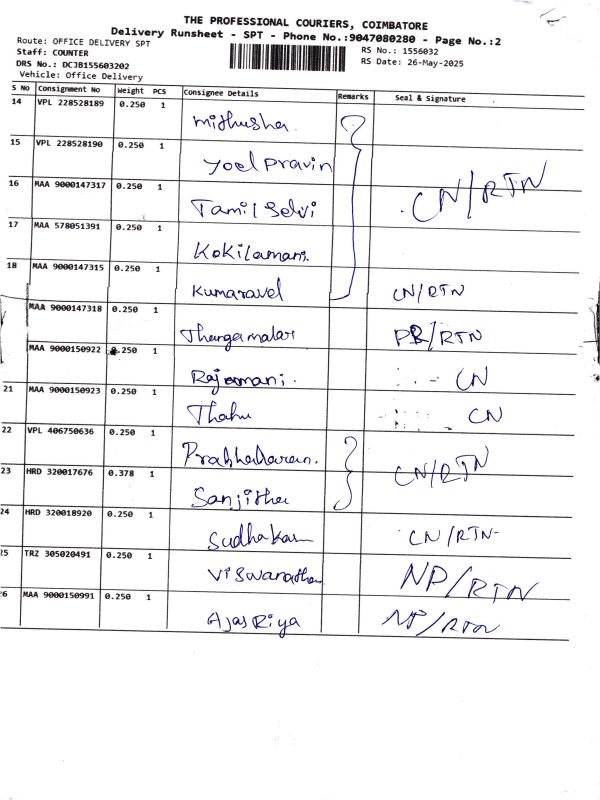 THE PROFESSIONAL COURIERS, COIMBATORE
Delivery Runsheet - SPT - Phone No.:9047080280 - Page No.:2
Route: OFFICE DELIVERY SPT
RS No.: 1556032
Staff: COUNTER
RS Date: 26-May-2025
DRS No.: DCJB155603202
Vehicle: Office Delivery
S No Consignment No Weight PCS Consignee Details Remarks Seal & Signature
14 VPL 228528189 0.250 1 Mithusha.
15 VPL 228528190 0.250 1 Yoel Pravin
CN/RTN
16 MAA 9000147317 0.250 1 Tamil Selvi
17 MAA 578051391 0.250 1 Kokilamani.
18 MAA 9000147315 0.250 1 Kumaravel CN/RTN
MAA 9000147318 0.250 1 Thangamalar /RTN
MAA 9000150922 0.250 1 Rajamani. CN
21 MAA 9000150923 0.250 1 CN
22 VPL 406750636 0.250 1 Prabhakaran.
CN/RTN
23 HRD 320017676 0.378 1 Sanjitha
24 HRD 320018920 0.250 1 Sudhakar CN/RTN-
25 TRZ 305020491 0.250 1 Viswanathan NP/RTN
26 MAA 9000150991 0.250 1 Ajas Riya NP/RTN